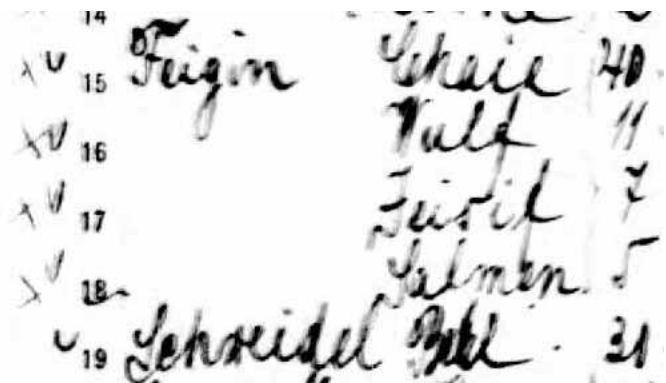 14
15 Feigin Schaie 40
16 Wulf 11
17 Feivil 7
18 Salman 5
19 Schneidel 31